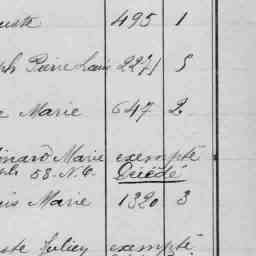 uste 495 1
ph Pierre Louis 2271 5
e Marie 647 2
onard Marie exempté
58. N.C. Décédé
is Marie 1320 3
ste Julien exempté